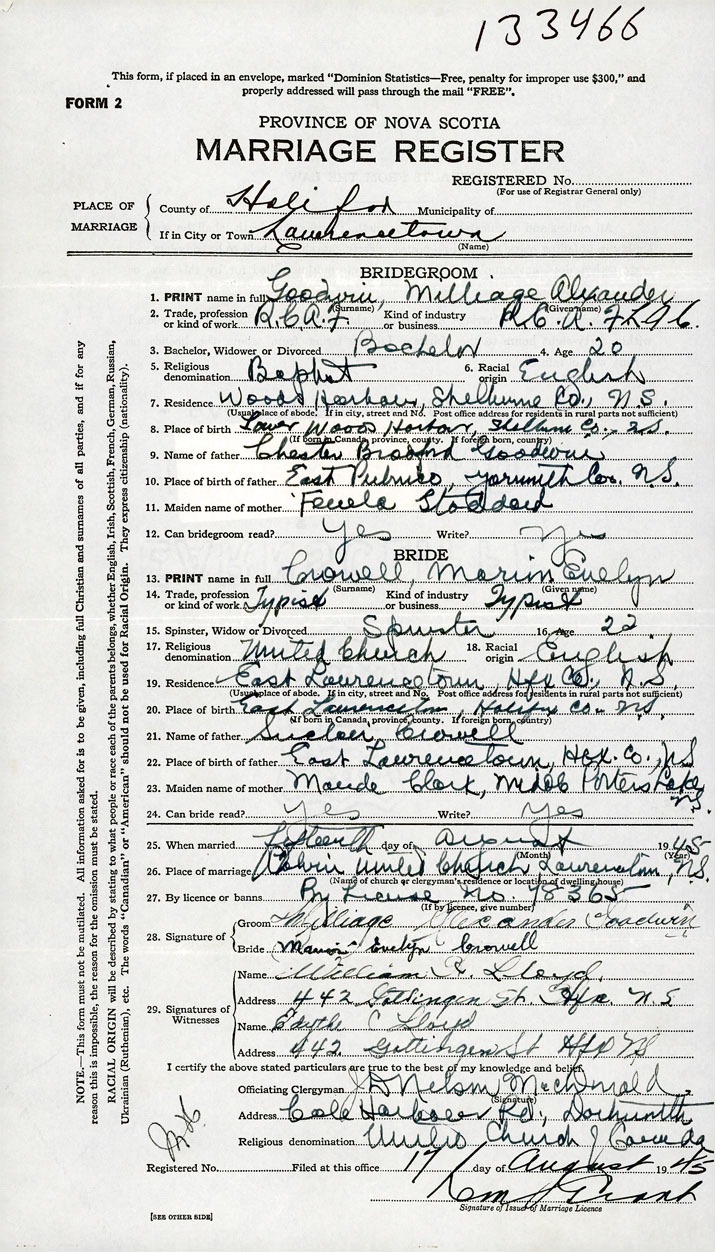 133466
This form, if placed in an envelope, marked "Dominion Statistics—Free, penalty for improper use $300," and
properly addressed will pass through the mail "FREE".
FORM 2
PROVINCE OF NOVA SCOTIA
MARRIAGE REGISTER
REGISTERED No.
(For use of Registrar General only)
PLACE OF MARRIAGE
County of Halifax Municipality of
If in City or Town Lawrencetown
(Name)
BRIDEGROOM
1. PRINT name in full Goodwin, Milliage Alexander
(Surname) (Given name)
2. Trade, profession or kind of work R.C.A.F. Kind of industry or business R.C.A.F.
3. Bachelor, Widower or Divorced Bachelor 4. Age 20
5. Religious denomination Baptist 6. Racial origin English
7. Residence Woods Harbour, Shelburne Co., N.S.
(Usual place of abode. If in city, street and No. Post office address for residents in rural parts not sufficient)
8. Place of birth Lower Woods Harbour, Shelburne Co., N.S.
(If born in Canada, province, county. If foreign born, country)
9. Name of father Chester Bradford Goodwin
10. Place of birth of father East Pubnico, Yarmouth Co. N.S.
11. Maiden name of mother Stoddard
12. Can bridegroom read? Yes Write? Yes
BRIDE
13. PRINT name in full Crowell, Marion Evelyn
(Surname) (Given name)
14. Trade, profession or kind of work Typist Kind of industry or business Typist
15. Spinster, Widow or Divorced Spinster 16. Age 22
17. Religious denomination United Church 18. Racial origin English
19. Residence East Lawrencetown, Hfx Co., N.S.
(Usual place of abode. If in city, street and No. Post office address for residents in rural parts not sufficient)
20. Place of birth East Lawrencetown, Halifax Co. N.S.
(If born in Canada, province, county. If foreign born, country)
21. Name of father Crowell
22. Place of birth of father East Lawrencetown, Hfx. Co., N.S
23. Maiden name of mother Maude Clark, Porters Lake, N.S.
24. Can bride read? Yes Write? Yes
25. When married fifteenth day of August 1945
(Month) (Year)
26. Place of marriage Calvin United Church, Lawrencetown, N.S.
(Name of church or clergyman's residence or location of dwelling house)
27. By licence or banns By License No. 98365
(If by licence, give number)
28. Signature of
Groom Milliage Alexander Goodwin
Bride Marion Evelyn Crowell
29. Signatures of Witnesses
Name William R. Lloyd
Address 442 Gottingen St. Hfx. N.S
Name Edythe C Lloyd
Address 442 Gottingen St Hfx NS
I certify the above stated particulars are true to the best of my knowledge and belief.
Officiating Clergyman J D Nelson MacDonald
(Signature)
Address Cole Harbour Rd., Dartmouth
Religious denomination United Church of Canada
Registered No. Filed at this office 17 day of August 1945
Grant
Signature of Issuer of Marriage Licence
[SEE OTHER SIDE]
NOTE.—This form must not be mutilated. All information asked for is to be given, including full Christian and surnames of all parties, and if for any
reason this is impossible, the reason for the omission must be stated.
RACIAL ORIGIN will be described by stating to what people or race each of the parents belongs, whether English, Irish, Scottish, French, German, Russian,
Ukrainian (Ruthenian), etc. The words "Canadian" or "American" should not be used for Racial Origin. They express citizenship (nationality).